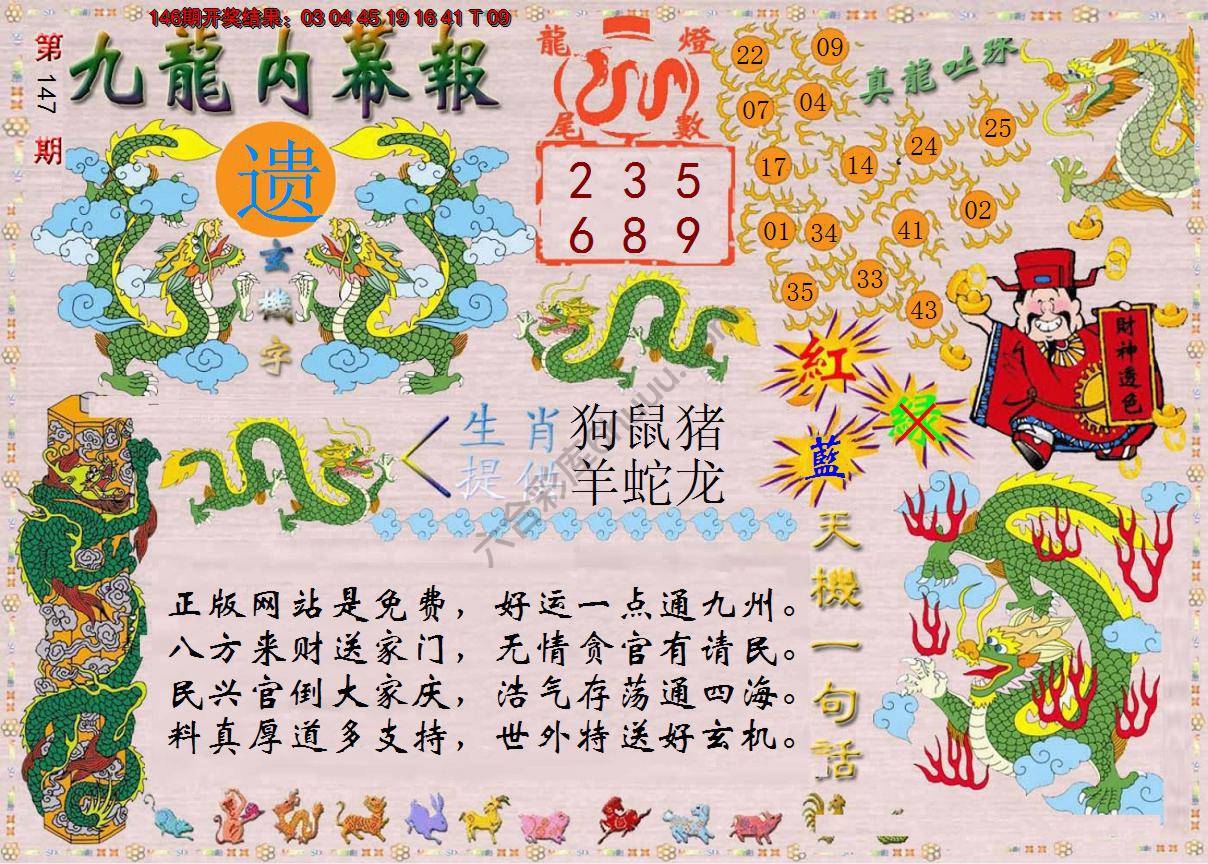 146期开奖结果：03 04 45 19 16 41 T 09
第147期
九龍内幕報
遗
玄機字
龍燈
尾數
2 3 5
6 8 9
真龍吐珠
22 09
07 04
25
24
17 14
02
01 34 41
33
35
43
財神透色
紅
綠
藍
生肖 狗鼠猪
提供 羊蛇龙
天機一句話
正版网站是免费，好运一点通九州。
八方来财送家门，无情贪官有请民。
民兴官倒大家庆，浩气存荡通四海。
料真厚道多支持，世外特送好玄机。